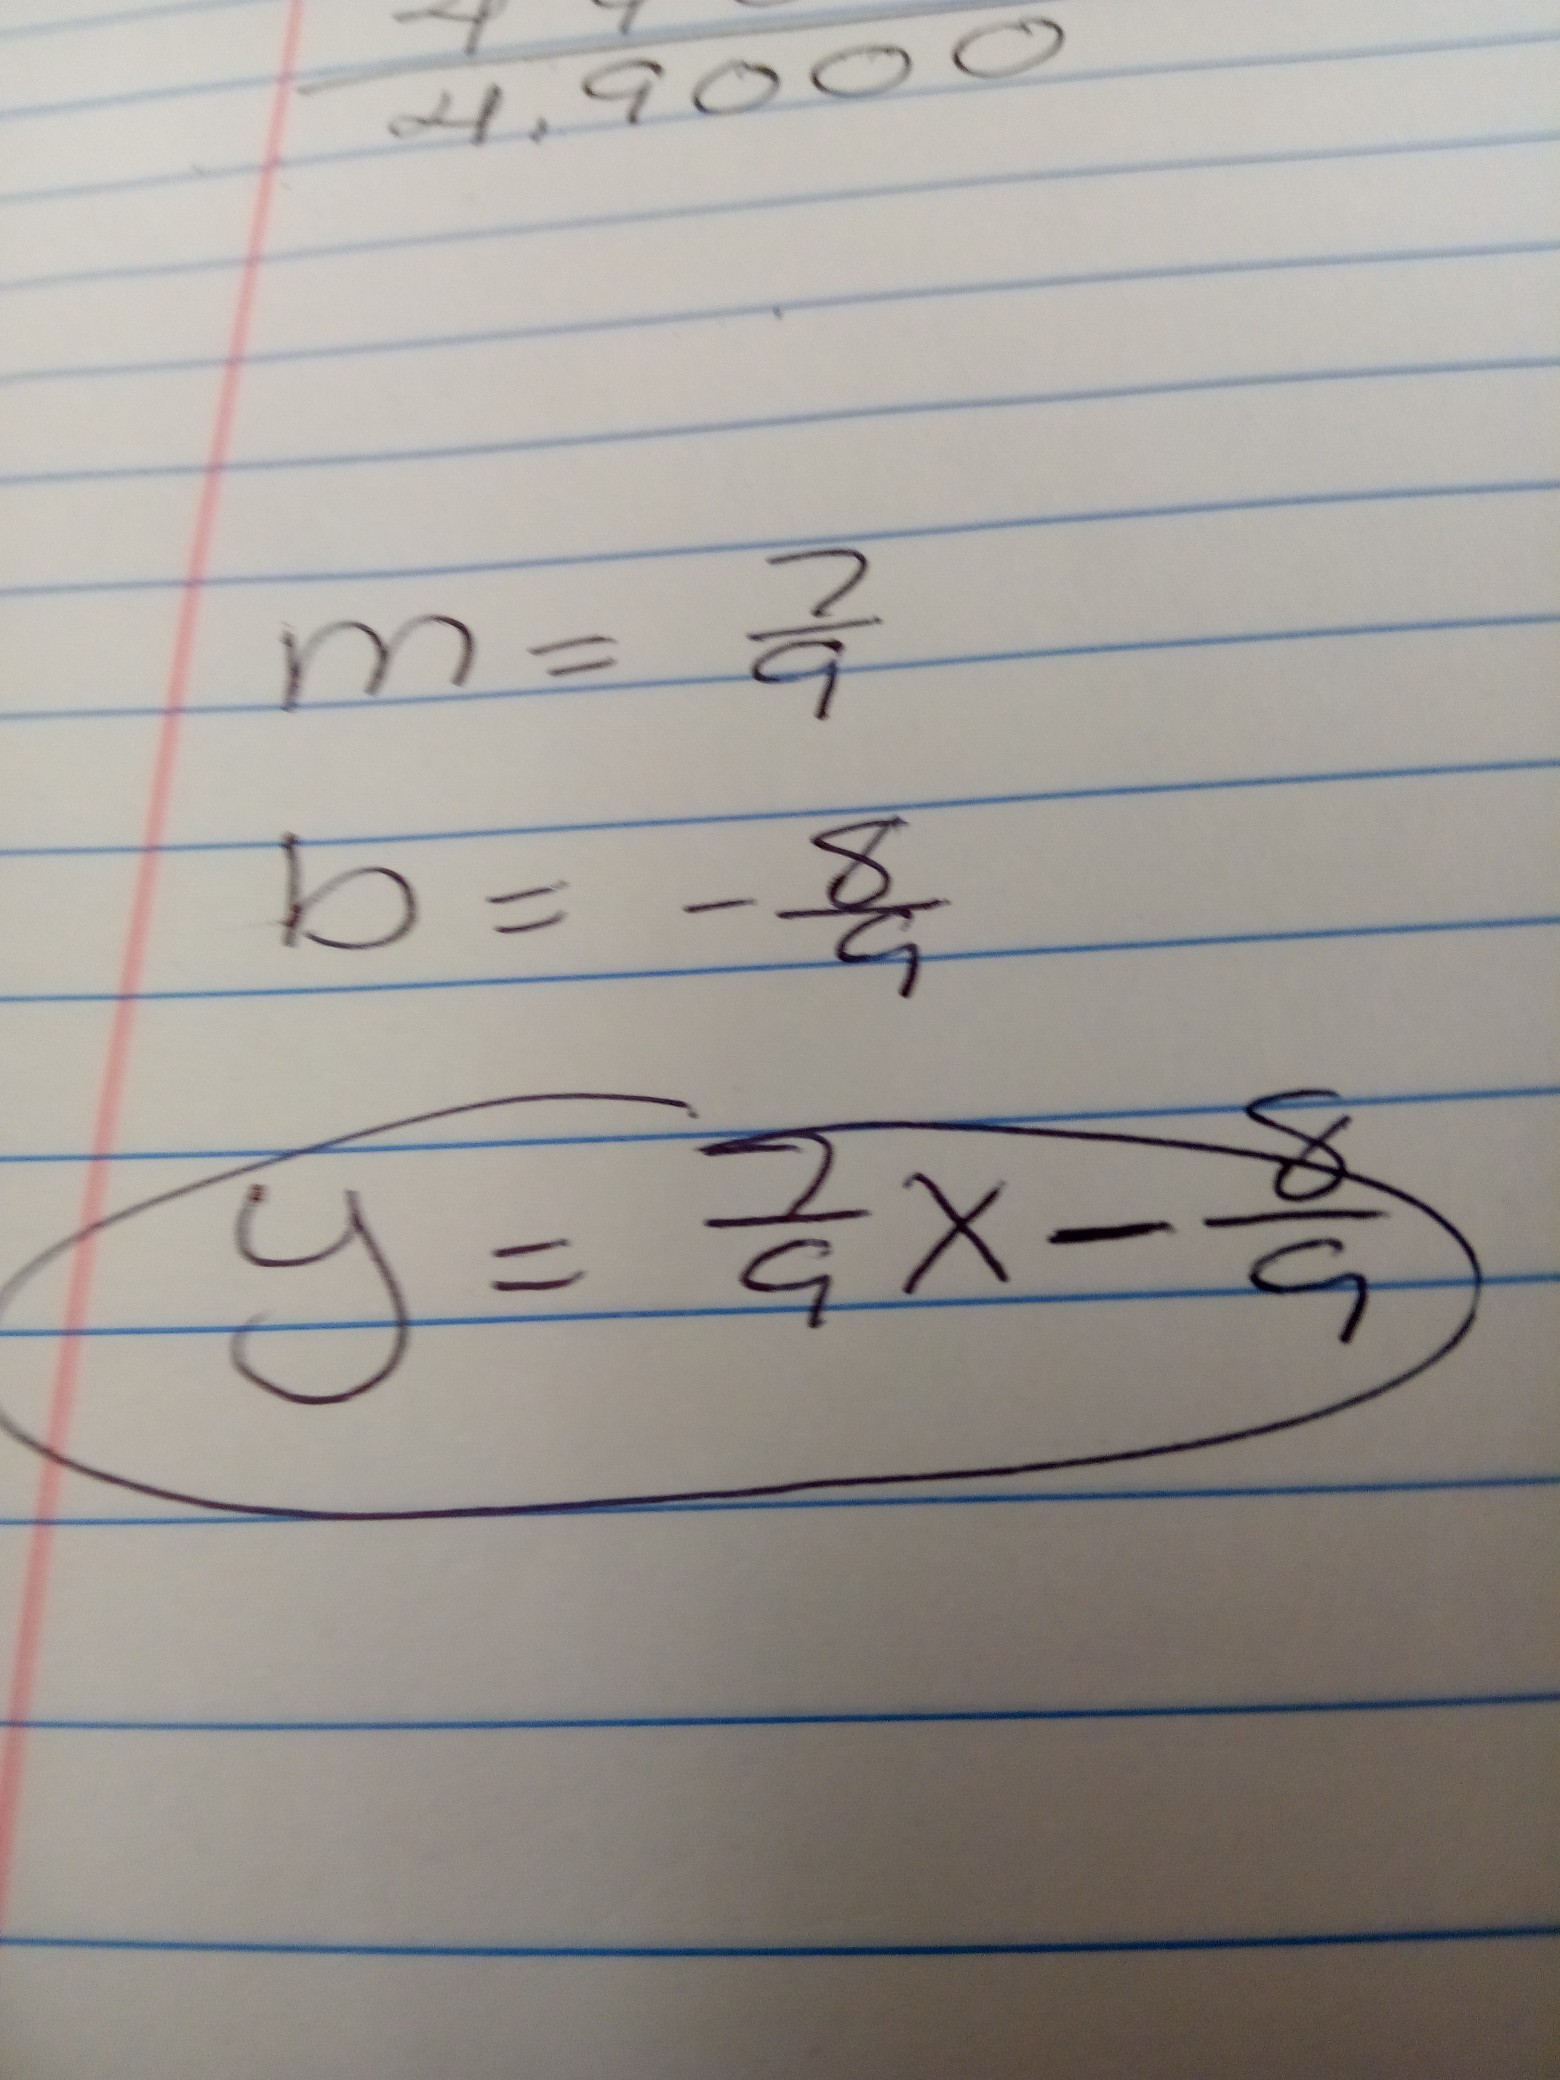 4.9000
m = 7/9
b = -8/9
y = 7/9 x - 8/9